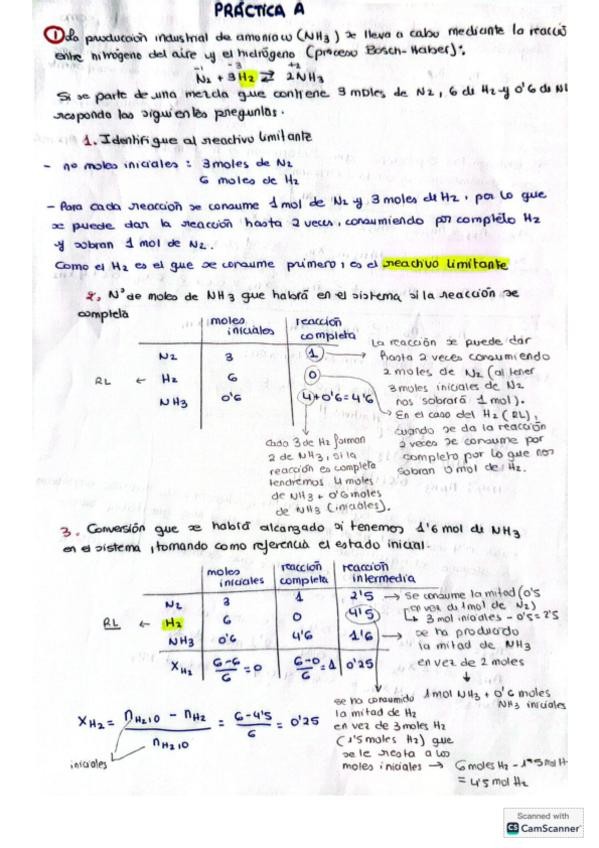 PRÁCTICA A
① La producción industrial de amoniaco (NH3) se lleva a cabo mediante la reacció
entre nitrógeno del aire y el hidrógeno (proceso Bosch-Haber):
-1 -3 +2
N2 + 3H2 ⇄ 2NH3
Si se parte de una mezcla que contiene 3 moles de N2, 6 de H2 y 0'6 de N
responda las siguientes preguntas.
1. Identifique al reactivo limitante
- nº moles iniciales : 3 moles de N2
6 moles de H2
- Para cada reacción se consume 1 mol de N2 y 3 moles de H2, por lo que
se puede dar la reacción hasta 2 veces, consumiendo por completo H2
y sobran 1 mol de N2.
Como el H2 es el que se consume primero, es el reactivo limitante
2. Nº de moles de NH3 que habrá en el sistema si la reacción se
completa
moles iniciales reacción completa
N2 3 1
RL ← H2 6 0
NH3 0'6 4+0'6=4'6
La reacción se puede dar
hasta 2 veces consumiendo
2 moles de N2 (al tener
3 moles iniciales de N2
nos sobrará 1 mol).
En el caso del H2 (RL),
cuando se da la reacción
2 veces se consume por
completo por lo que nos
sobran 0 mol de H2.
Cada 3 de H2 forman
2 de NH3, si la
reacción es completa
tendremos 4 moles
de NH3 + 0'6 moles
de NH3 (iniciales).
3. Conversión que se habrá alcanzado si tenemos 1'6 mol de NH3
en el sistema, tomando como referencia el estado inicial.
moles iniciales reacción completa reacción intermedia
N2 3 1 2'5
RL ← H2 6 0 4'5
NH3 0'6 4'6 1'6
XH2 6-6/6 = 0 6-0/6 = 1 0'25
→ se consume la mitad (0'5
en vez de 1 mol de N2)
3 mol iniciales - 0'5 = 2'5
→ se ha producido
la mitad de NH3
en vez de 2 moles
↓
1 mol NH3 + 0'6 moles
NH3 iniciales
se ha consumido
la mitad de H2
en vez de 3 moles H2
(1'5 moles H2) que
se le resta a los
moles iniciales → 6 moles H2 - 1'5 mol H
= 4'5 mol H2
XH2 = nH2,0 - nH2 / nH2,0 = 6-4'5 / 6 = 0'25
iniciales
Scanned with
CS CamScanner